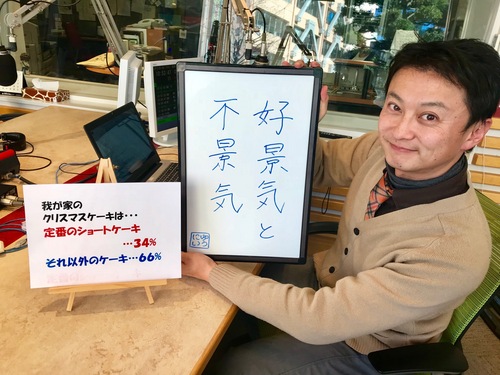 好景気と
不景気
我が家の
クリスマスケーキは・・・
定番のショートケーキ
…34%
それ以外のケーキ…66%